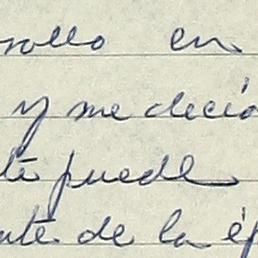 rollo en
y me decía
te puede
nte de la é